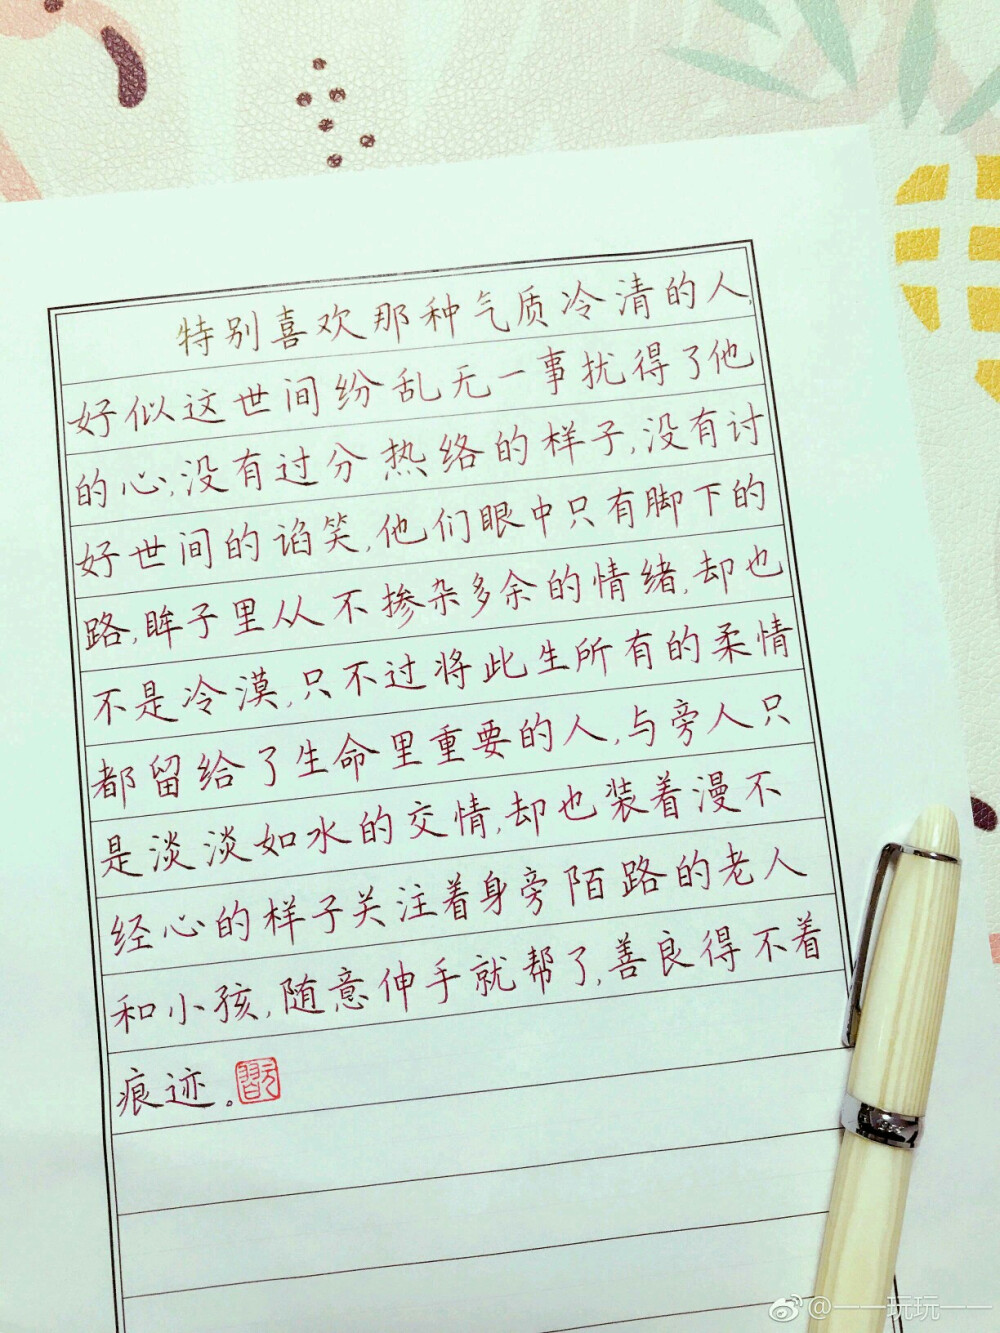 特别喜欢那种气质冷清的人,
好似这世间纷乱无一事扰得了他
的心,没有过分热络的样子,没有讨
好世间的谄笑,他们眼中只有脚下的
路,眸子里从不掺杂多余的情绪,却也
不是冷漠,只不过将此生所有的柔情
都留给了生命里重要的人,与旁人只
是淡淡如水的交情,却也装着漫不
经心的样子关注着身旁陌路的老人
和小孩,随意伸手就帮了,善良得不着
痕迹。
@一一玩玩一一